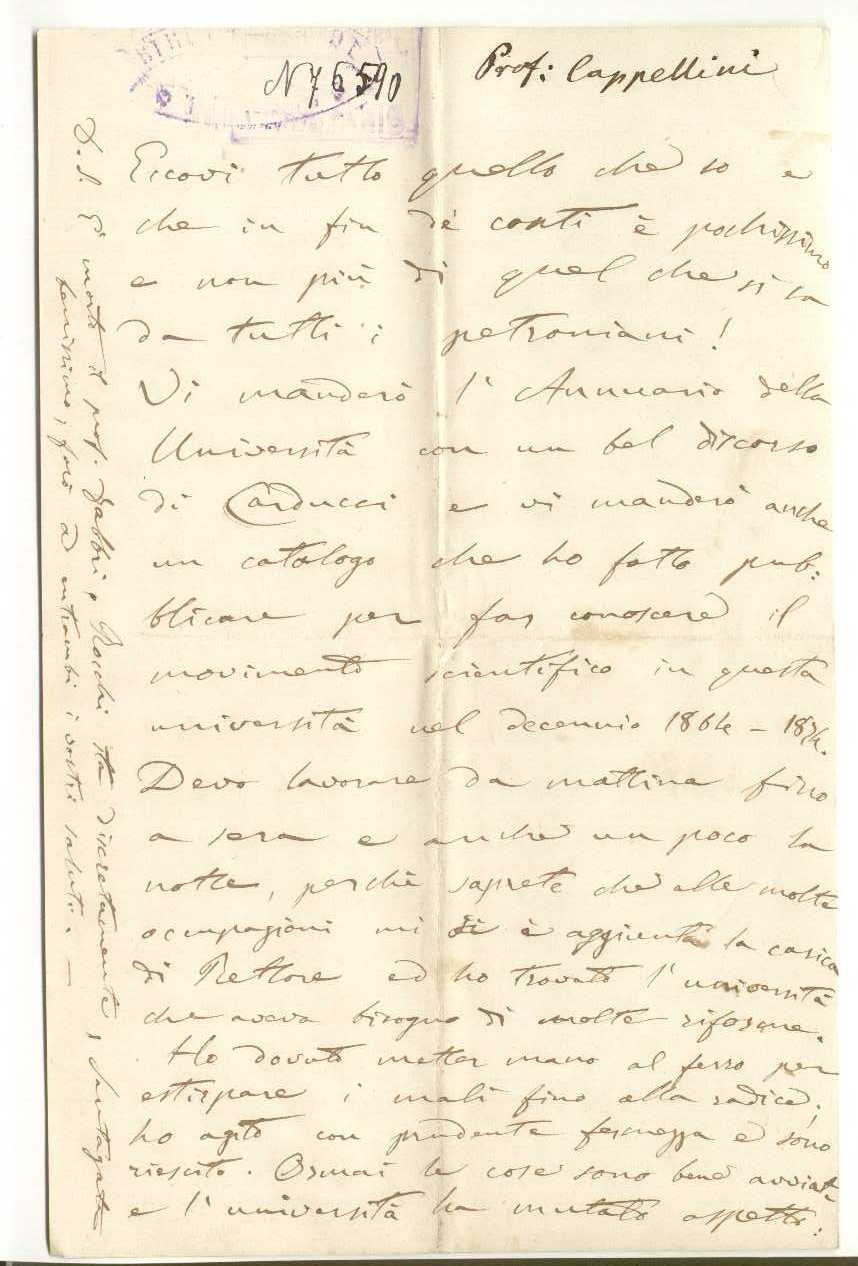 N 76590
Prof: Cappellini
Eccovi tutto quello che so e
che in fin de conti è pochissimo
e non più di quel che si sa
da tutti i petroniani!
Vi manderò l'Annuario della
Università con un bel discorso
di Carducci e vi manderò anche
un catalogo che ho fatto pub:
blicare per far conoscere il
movimento scientifico in questa
università nel decennio 1864-1874.
Devo lavorare da mattina fino
a sera e anche un poco la
notte, perchè saprete che alle molte
occupazioni mi si è aggiunta la carica
di Rettore ed ho trovato l'università
che aveva bisogno di molte riforme.
Ho dovuto metter mano al ferro per
estirpare i mali fino alla radice;
ho agito con prudente fermezza e sono
riescito. Ormai le cose sono bene avviate
e l'università ha mutato aspetto:
P.S. È morto il prof. Fabbri, Rocchi sta discretamente, Santagata
benissimo; farò ad entrambi i vostri saluti. —